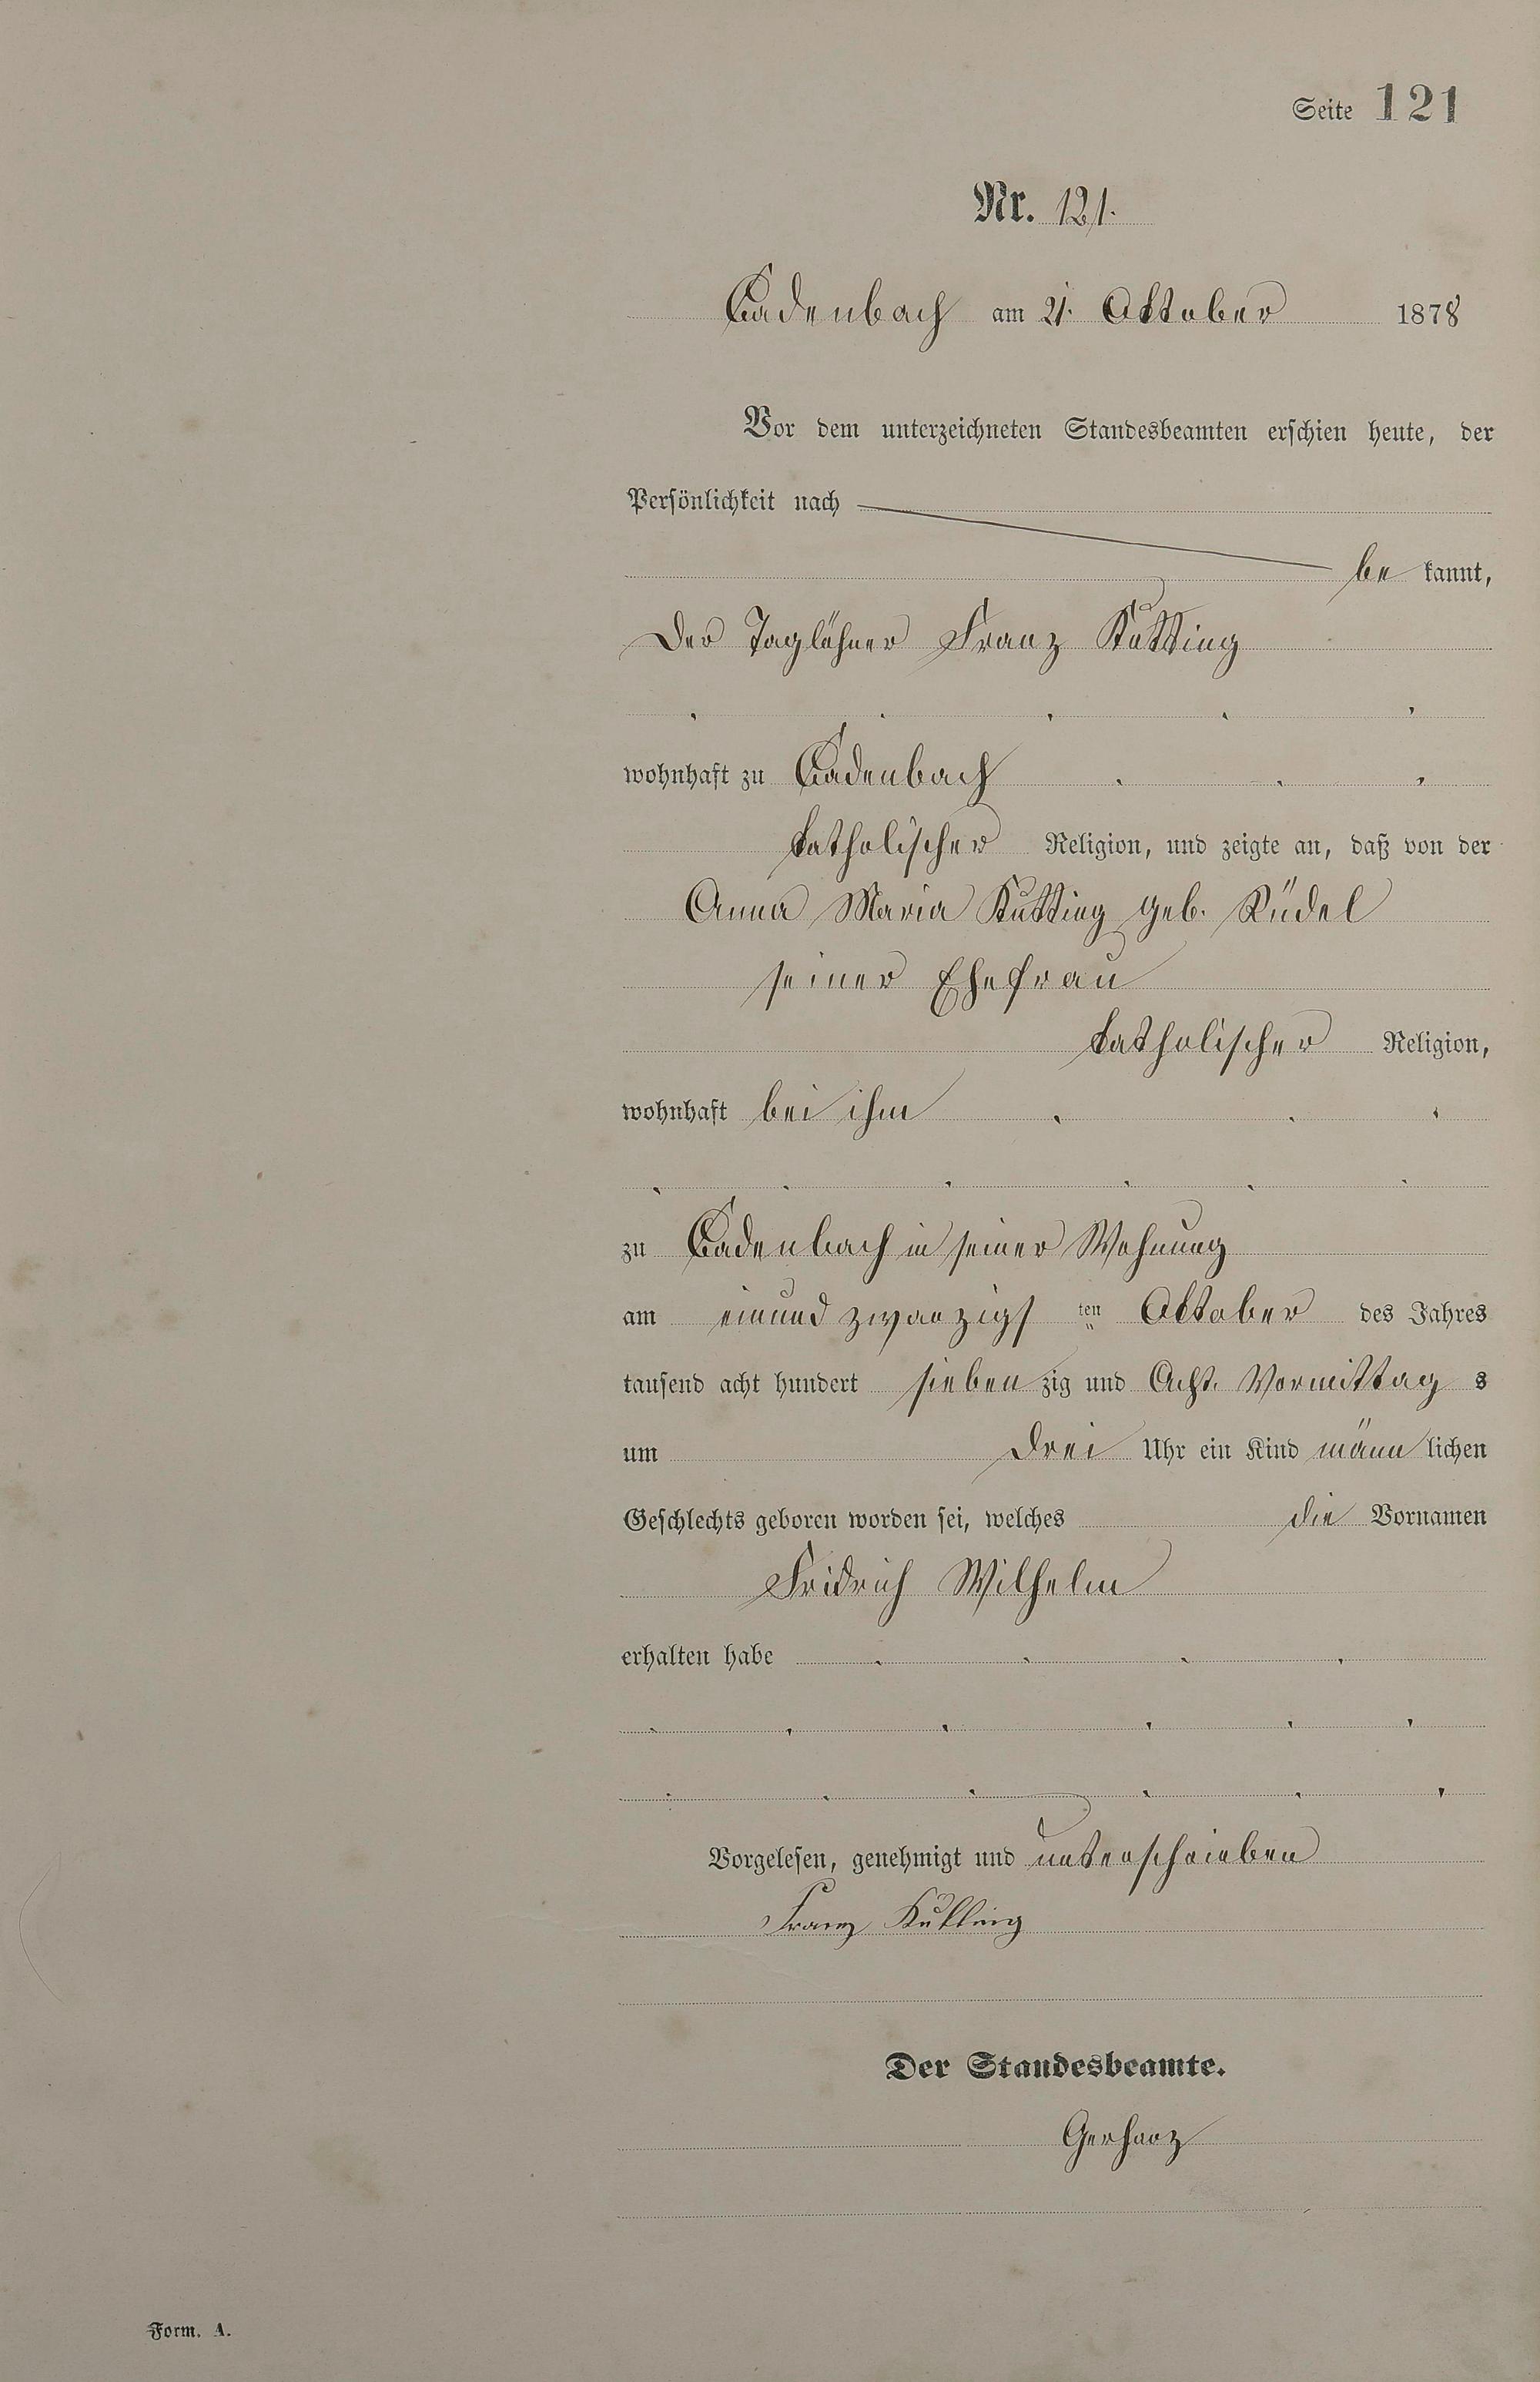 Seite 121
Nr. 121.
Cadenbach am 21. Oktober 1878
Vor dem unterzeichneten Standesbeamten erschien heute, der
Persönlichkeit nach
be kannt,
Der Taglöhner Franz Kutting
wohnhaft zu Cadenbach
katholischer Religion, und zeigte an, daß von der
Anna Maria Kutting geb. Rüdel
seiner Ehefrau
katholischer Religion,
wohnhaft bei ihm
zu Cadenbach in seiner Wohnung
am einund zwanzigs ten Oktober des Jahres
tausend acht hundert sieben zig und Acht Vormittag s
um Drei Uhr ein Kind männ lichen
Geschlechts geboren worden sei, welches die Vornamen
Fridrich Wilhelm
erhalten habe
Vorgelesen, genehmigt und unterschrieben
Franz Kutting
Der Standesbeamte.
Gerharz
Form. A.